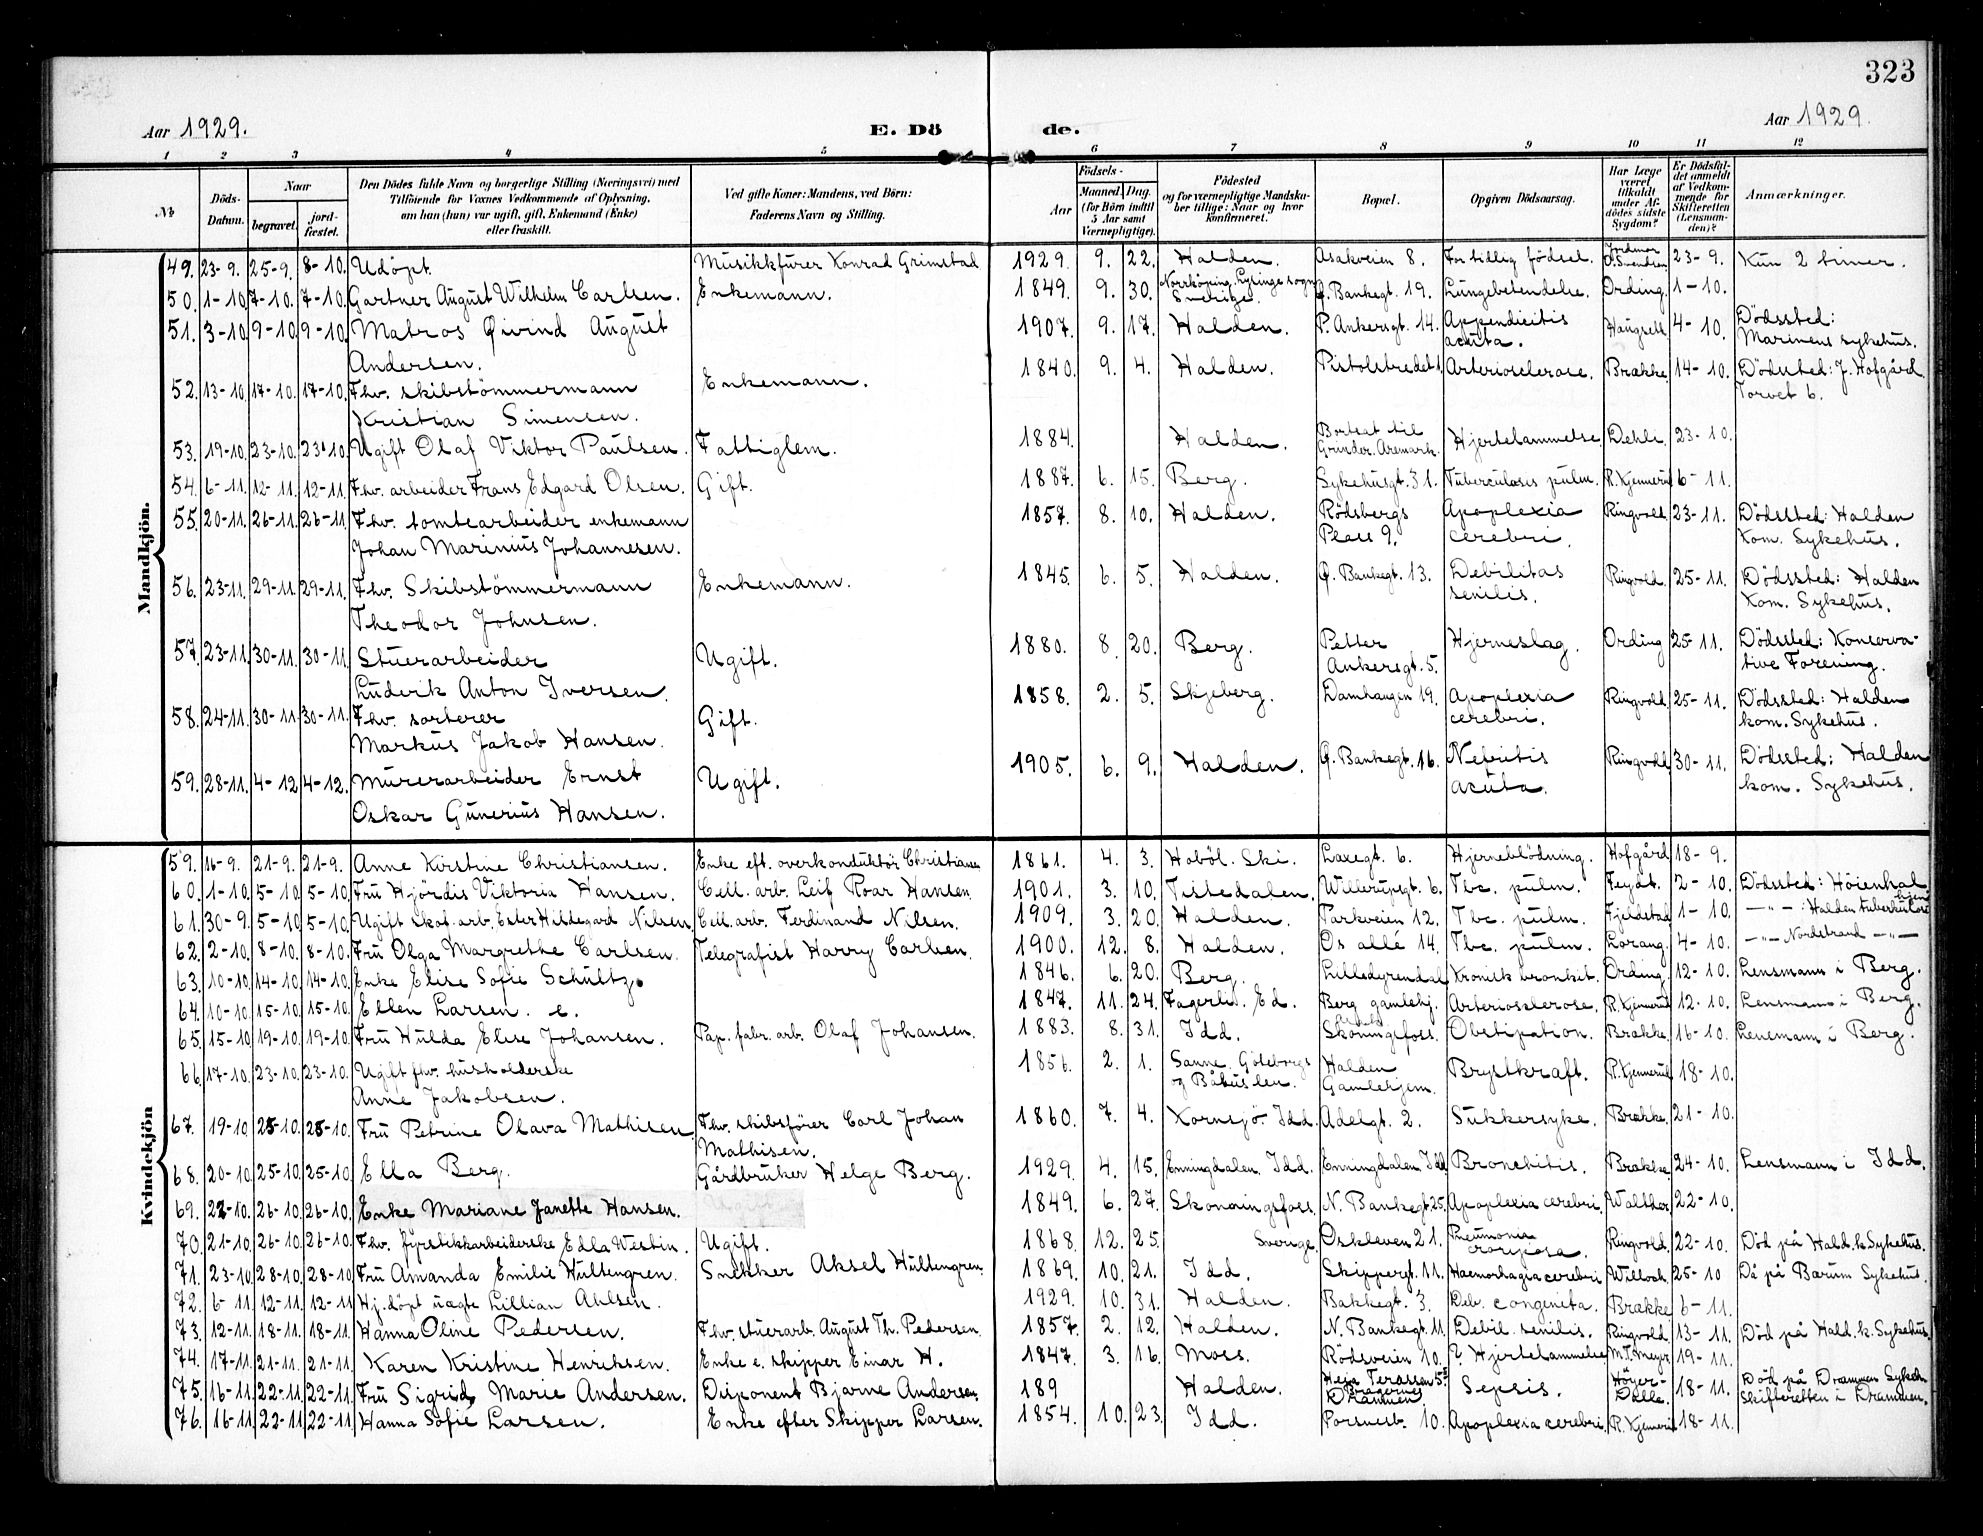 323
Aar 1929.
E. Dö
de.
Aar 1929.
1 2 3 4 5 6 7 8 9 10 11 12
No
Döds-Datum.
Naar
begravet. jordfæstet.
Den Dödes fulde Navn og borgerlige Stilling (Næringsvei) med
Tilföiende for Voxnes Vedkommende af Oplysning,
om han (hun) var ugift, gift, Enkemand (Enke)
eller fraskilt.
Ved gifte Koner: Mandens, ved Börn:
Faderens Navn og Stilling.
Födsels-
Aar
Maaned. Dag.
(for Börn indtil
5 Aar samt
Værnepligtige).
Födested
og for værnepligtige Mandskaber tillige: Naar og hvor
konfirmeret.
Bopæl.
Opgiven Dödsaarsag.
Har Læge været tilkaldt under Afdödes sidste Sygdom?
Er Dödsfaldet anmeldt af Vedkommende for Skifteretten (Lensmanden)?
Anmærkninger.
Mandkjön.
49. 23-9. 25-9. 8-10. Udöpt. Musikkfurer Konrad Grimstad 1929. 9. 22. Halden. Asakveien 8. For tidlig födsel. Jordmor O. Svendsen 23-9. Kun 2 timer.
50. 1-10. 7-10. 7-10. Gartner August Wilhelm Carlsen. Enkemann. 1849. 9. 30. Norrköping, sogn Sverige. Ø. Bankegt. 19. Lungebetendelse. Ording. 1-10.
51. 3-10. 9-10. 9-10. Matros Øivind August
Andersen. 1907. 9. 17. Halden. P. Ankersgt. 14. Appendicitis
acuta. Haugsett 4-10. Dödssted:
Marinens sykehus.
52. 13-10. 17-10. 17-10. Fhv. skibstömmermann
Kristian Simensen. Enkemann. 1840. 9. 4. Halden. Pistolstredet 1. Arteriosclerose. Brække. 14-10. Dödssted: J. Hofgård
Torvet 6.
53. 19-10. 23-10. 23-10. Ugift Olaf Viktor Paulsen. Fattiglem. 1884. Halden. Bortsat til
Grinder. Aremark. Hjertelammelse. Dehli. 23-10.
54. 6-11. 12-11. 12-11. Fhv. arbeider Frans Edgard Olsen. Gift. 1887. 6. 15. Berg. Sykehusgt. 31. Tuberculosis pulm. R. Kjennerud 6-11.
55. 20-11. 26-11. 26-11. Fhv. tomtearbeider enkemann
Johan Marinius Johannesen. 1857. 8. 10. Halden. Rödsbergs
Plass 9. Apoplexia
cerebri. Ringvold. 23-11. Dödssted: Halden
Kom. Sykehus.
56. 23-11. 29-11. 29-11. Fhv. Skibstömmermann
Theodor Johnsen. Enkemann. 1845. 6. 5. Halden. Ø. Bankegt. 13. Debilitas
senilis. Ringvold. 25-11. Dödssted: Halden
Kom. Sykehus.
57. 23-11. 30-11. 30-11. Stuerarbeider
Ludvik Anton Iversen. Ugift. 1880. 8. 20. Berg. Petter
Ankersgt. 5. Hjerneslag. Ording 25-11. Dödssted: Konserva-
tive Forening.
58. 24-11. 30-11. 30-11. Fhv. sorterer
Markus Jakob Hansen. Gift. 1858. 2. 5. Skjeberg. Damhaugen 19. Apoplexia
cerebri. Ringvold. 25-11. Dödssted: Halden
kom. Sykehus.
59. 28-11. 4-12. 4-12. Murerarbeider Ernst
Oskar Gunerius Hansen. Ugift. 1905. 6. 9. Halden. Ø. Bankegt. 16. Nefritis
acuta. Ringvold 30-11. Dödssted: Halden
kom. Sykehus.
Kvindekjön
59. 16-9. 21-9. 21-9. Anne Kirstine Christiansen. Enke eft. overkonduktör Christiansen 1861. 4. 3. Haböl. Ski. Laxegt. 6. Hjerneblödning. Hofgård 18-9.
60. 1-10. 5-10. 5-10. Fru Hjördis Viktoria Hansen. Cell. arb. Leif Roar Hansen. 1901. 3. 10. Tistedalen. Willerupsgt. 6. Tbc. pulm. Feydt. 2-10. Dödssted: Höienhal
61. 30-9. 5-10. 5-10. Ugift skot. arb. Ester Hildegard Nilsen. Cell. arb. Ferdinand Nilsen. 1909. 3. 20. Halden. Parkveien 12. Tbc. pulm. Fjeldstad 1-10. —"— : Halden tuberkulose hjem
62. 2-10. 8-10. 8-10. Fru Olga Margrethe Carlsen. Telegrafist Harry Carlsen. 1900. 12. 8. Halden. Os allé 14. Tbc. pulm. Lorang. 4-10. —"— Nordstrand —"—
63. 10-10. 14-10. 14-10. Enke Elise Sofie Schultz. 1846. 6. 20. Berg. Lilledyrendal Kronisk bronkit. Ording. 12-10. Lensmann i Berg.
64. 10-10. 15-10. 15-10. Ellen Larsen. e. 1847. 11. 24. Fagerli. Ed. Berg gamlehj. Arteriosclerose. R. Kjennerud 12-10. Lensmann i Berg.
65. 15-10. 19-10. 19-10. Fru Hulda Elise Johansen. Pap. fabr. arb. Olaf Johansen. 1883. 8. 31. Idd. Skonningsfoss. Obstipation. Brække. 16-10. Lensmann i Berg.
66. 17-10. 23-10. 23-10. Ugift fhv. husholderske
Anne Jakobsen. 1856. 2. 1. Sanne. Göteborgs
og Båhuslen. Halden
Gamlehjem. Brystkraft. R. Kjennerud 18-10.
67. 19-10. 25-10. 25-10. Fru Petrine Olava Mathisen Fhv. skibsförer Carl Johan
Mathisen. 1860. 7. 4. Kornsjö. Idd. Adelgt. 2. Sukkersyke. Brække. 21-10.
68. 20-10. 25-10. 25-10. Ella Berg. Gårdbruker Helge Berg. 1929. 4. 15. Enningdalen. Idd. Enningdalen. Idd Bronchitis. Brække. 24-10. Lensmann i Idd.
69. 22-10. 26-10. 26-10. Enke Mariane Janette Hansen. 1849. 6. 27. Skonningsfoss. N. Bankegt. 25. Apoplexia cerebri. Walther. 22-10.
70. 21-10. 26-10. 26-10. Fhv. fyrstikkarbeiderske Edla Westin. Ugift. 1868. 12. 25. Sverige. Oskleven 21. Pneumonia
crouposa. Ringvold. 22-10. Död på Hald. k. Sykehus.
71. 23-10. 28-10. 28-10. Fru Amanda Emilie Hultengren. Snekker Aksel Hultengren. 1869. 10. 21. Idd. Skippergt. 11. Haemorhagia cerebri Willoch. 25-10 Dö på Bærum Sykehus.
72. 6-11. 12-11. 12-11. Hj. döpt uægte Lillian Ahlsen. 1929. 10. 31. Halden. Bakkegt. 3. Deb. congenita. Brække 6-11.
73. 12-11. 18-11. 18-11. Hanna Oline Pedersen. Fhv. stuerarb. August Th. Pedersen. 1857. 2. 12. Halden. N. Bankegt. 11. Debil. senilis. Ringvold. 13-11. Död på Hald. k. Sykehus.
74. 17-11. 21-11. 21-11. Karen Kristine Henriksen. Enke e. skipper Einar H. 1847. 3. 16. Moss. Rödsveien 10. ? Hjertelammelse M. T. Meyer 19-11.
75. 16-11. 22-11. 22-11. Fru Sigrid Marie Andersen. Disponent Bjarne Andersen. 189 Halden. Heja Terassen 5
Bragernes
Drammen Sepsis. Höyer-
Dalle. 18-11. Död på Drammen Sykeh.
Skifteretten i Drammen.
76. 16-11. 22-11. 22-11. Hanna Sofie Larsen. Enke efter Skipper Larsen. 1854. 10. 23. Idd. Porsnest. 10. Apoplexia cerebri. R. Kjennerud 18-11.